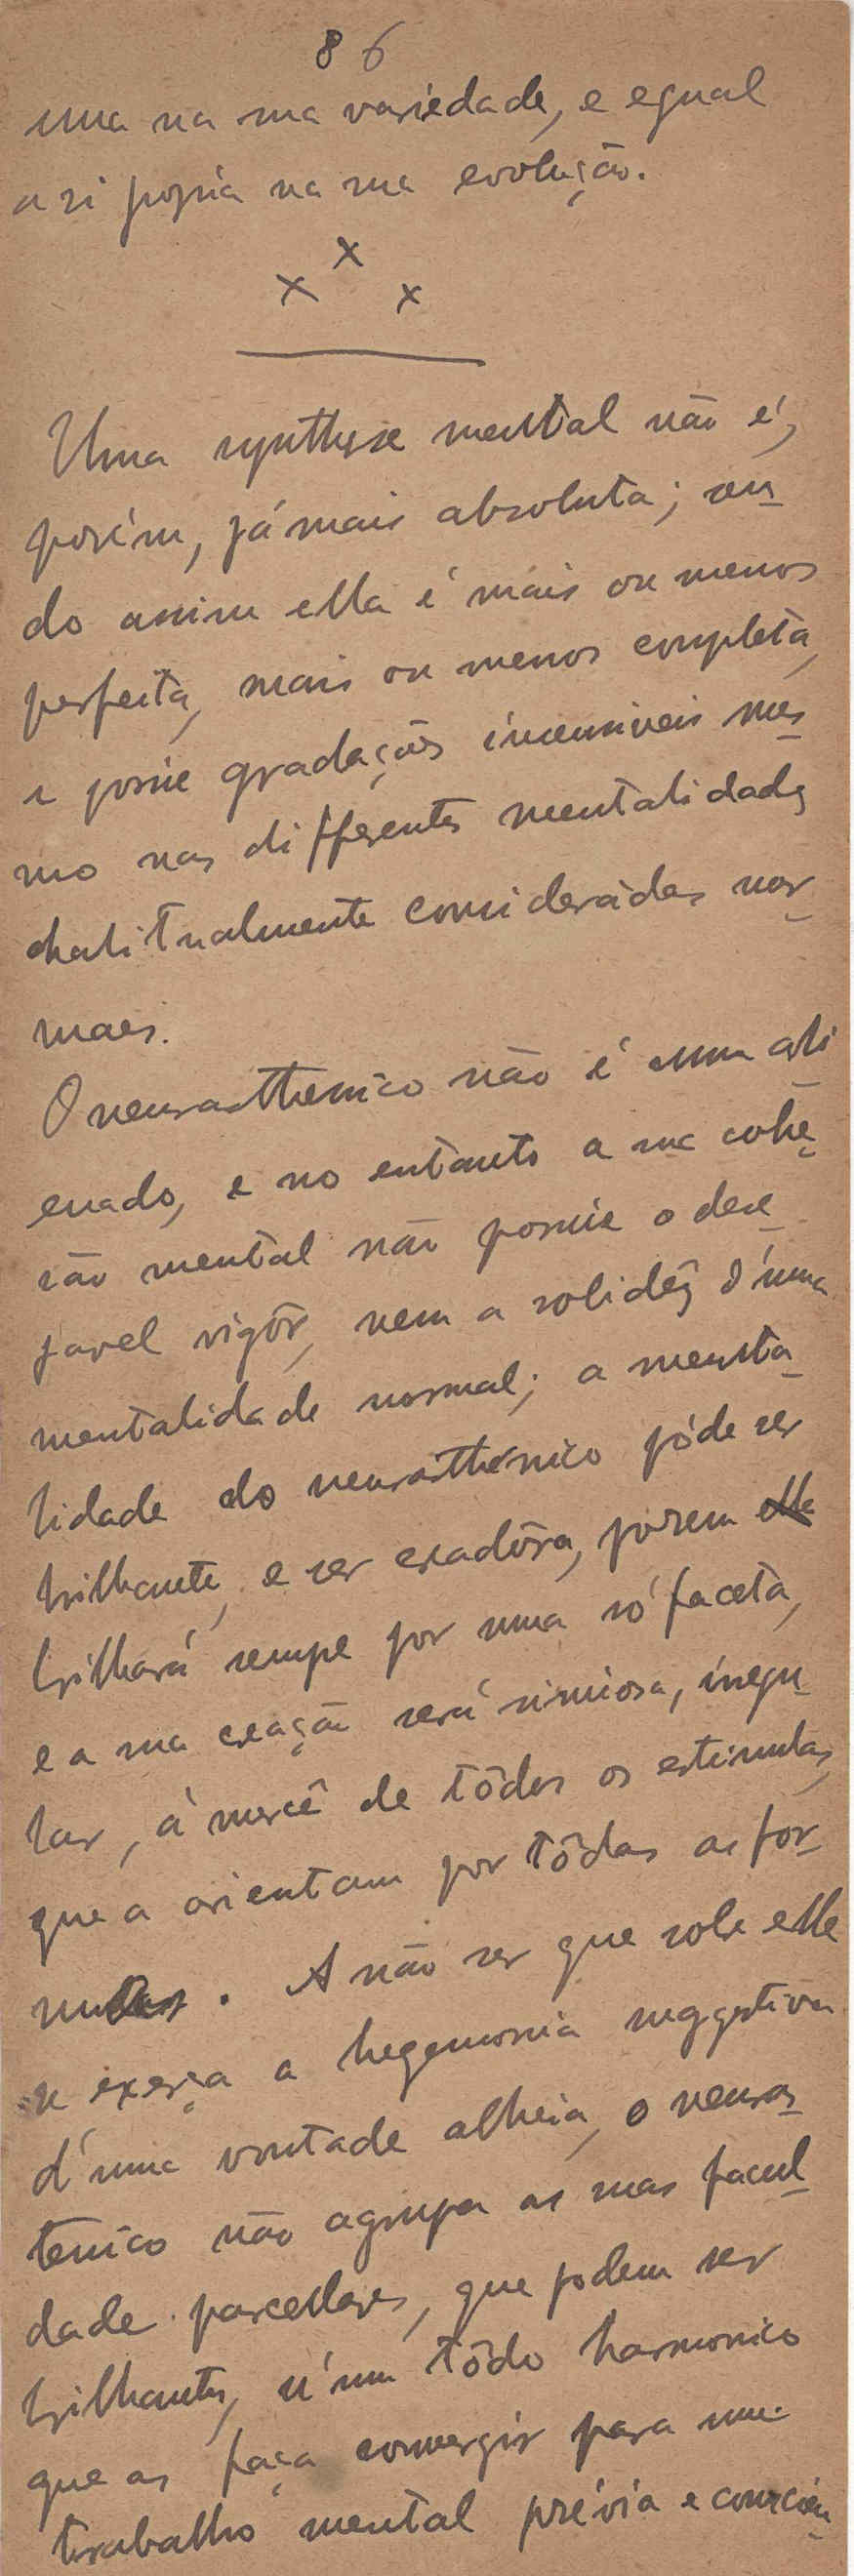 86
uma na sua variedade, e egual
a si propria na sua evolução.
x x x
Uma synthese mental não é,
porém, jámais absoluta; sen-
do assim ella é mais ou menos
perfeita, mais ou menos completa,
e possue gradações insensiveis mes-
mo nas differentes mentalidades
habitualmente consideradas nor-
maes.
O neurasthenico não é um ali-
enado, e no entanto a sua cohe-
são mental não possue o dese-
javel vigôr, nem a solidês d'uma
mentalidade normal; a menta-
lidade do neurasthenico póde ser
brilhante, e ser creadôra, porem elle
brilhará sempre por uma só faceta,
e a sua creação será sinuosa, irregu-
lar, á mercê de tôdos os estimulos,
que a orientam por tôdas as fór-
mas. A não ser que sobre elle
se exerça a hegemonia suggestiva
d'uma vontade alheia, o neuras-
tenico não agrupa as suas facul-
dade parcellares, que podem ser
brilhantes, n'um tôdo harmonico
que as faça convergir para um
trabalho mental prévia e conscien-